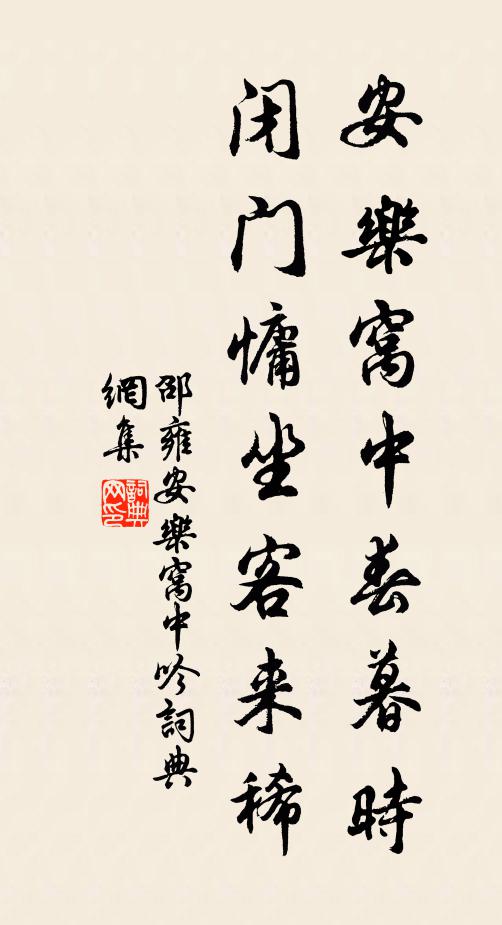 安樂窩中春暮時
闭门慵坐客来稀
邵雍安樂窩中吟詞典
網集
詞典
网印